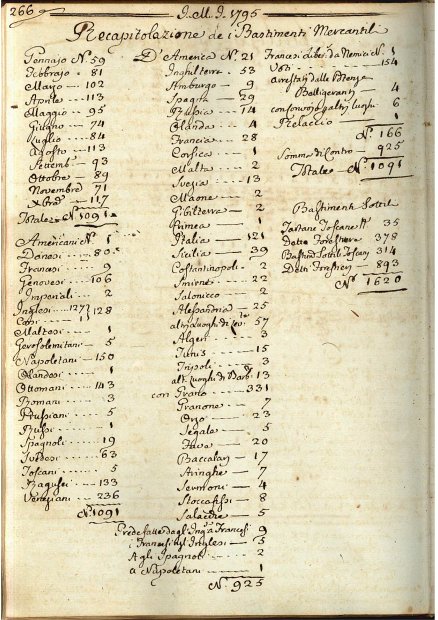 266
I.M.I. 1795
Recapitolazione de i Bastimenti Mercantili
Gennajo Nº. 59
Febbrajo - 81
Marzo - 102
Aprile - 113
Maggio - 95
Giugno - 74
Luglio - 84
Agosto - 113
Settemb. - 93
Ottobre - 89
Novembre 71
Xbre - 117
Totale Nº. 1091
Americani Nº. 1
Danesi 80
Francesi 9
Genovesi 106
Imperiali 2
Inglesi 127 128
Corsi 1
Maltesi 1
Gerosolemitani 5
Napoletani 150
Olandesi 1
Ottomani 143
Romani 3
Prussiani 5
Russi 1
Spagnoli 19
Svedesi 63
Toscani 5
Ragusei 133
Veneziani 236
Nº 1091
D'America Nº. 21
Inghilterra 53
Amburgo 9
Spagna 29
Russia 14
Olanda 4
Francia 28
Corsica 1
Malta 2
Svezia 13
Maone 2
Gibilterra 2
Crimea 1
Italia 121
Sicilia 39
Costantinopoli 2
Smirne 22
Salonicco 2
Alessandria 25
altri luoghi di Lev.te 57
Algeri 3
Tunis 15
Tripoli 3
alt. Luoghi di Barb. 13
con Grano 331
Granone 7
Orzo 23
Segale 5
Fava 20
Baccalari 17
Aringhe 7
Sermoni 4
Stoccafissi 8
Salacche 5
Prede fatte dagli Ing.si a Francesi 9
i Francesi agl'Inglesi 5
A gli Spagnoli 2
a Napoletani 1
Nº. 925
Francesi liber. da Nemici Nº. 1
Voti 154
arrestati dalle Potenze
Belligeranti 4
con savorra galtri luoghi 6
Rilascio 1
Nº. 166
Somma di Contro 925
Totale Nº 1091
Bastimenti Sottili
Tartane Toscane Nº 35
Dette Forestiere 378
Bastim.ti Sottili Toscani 314
Detti Forestieri 893
Nº 1620